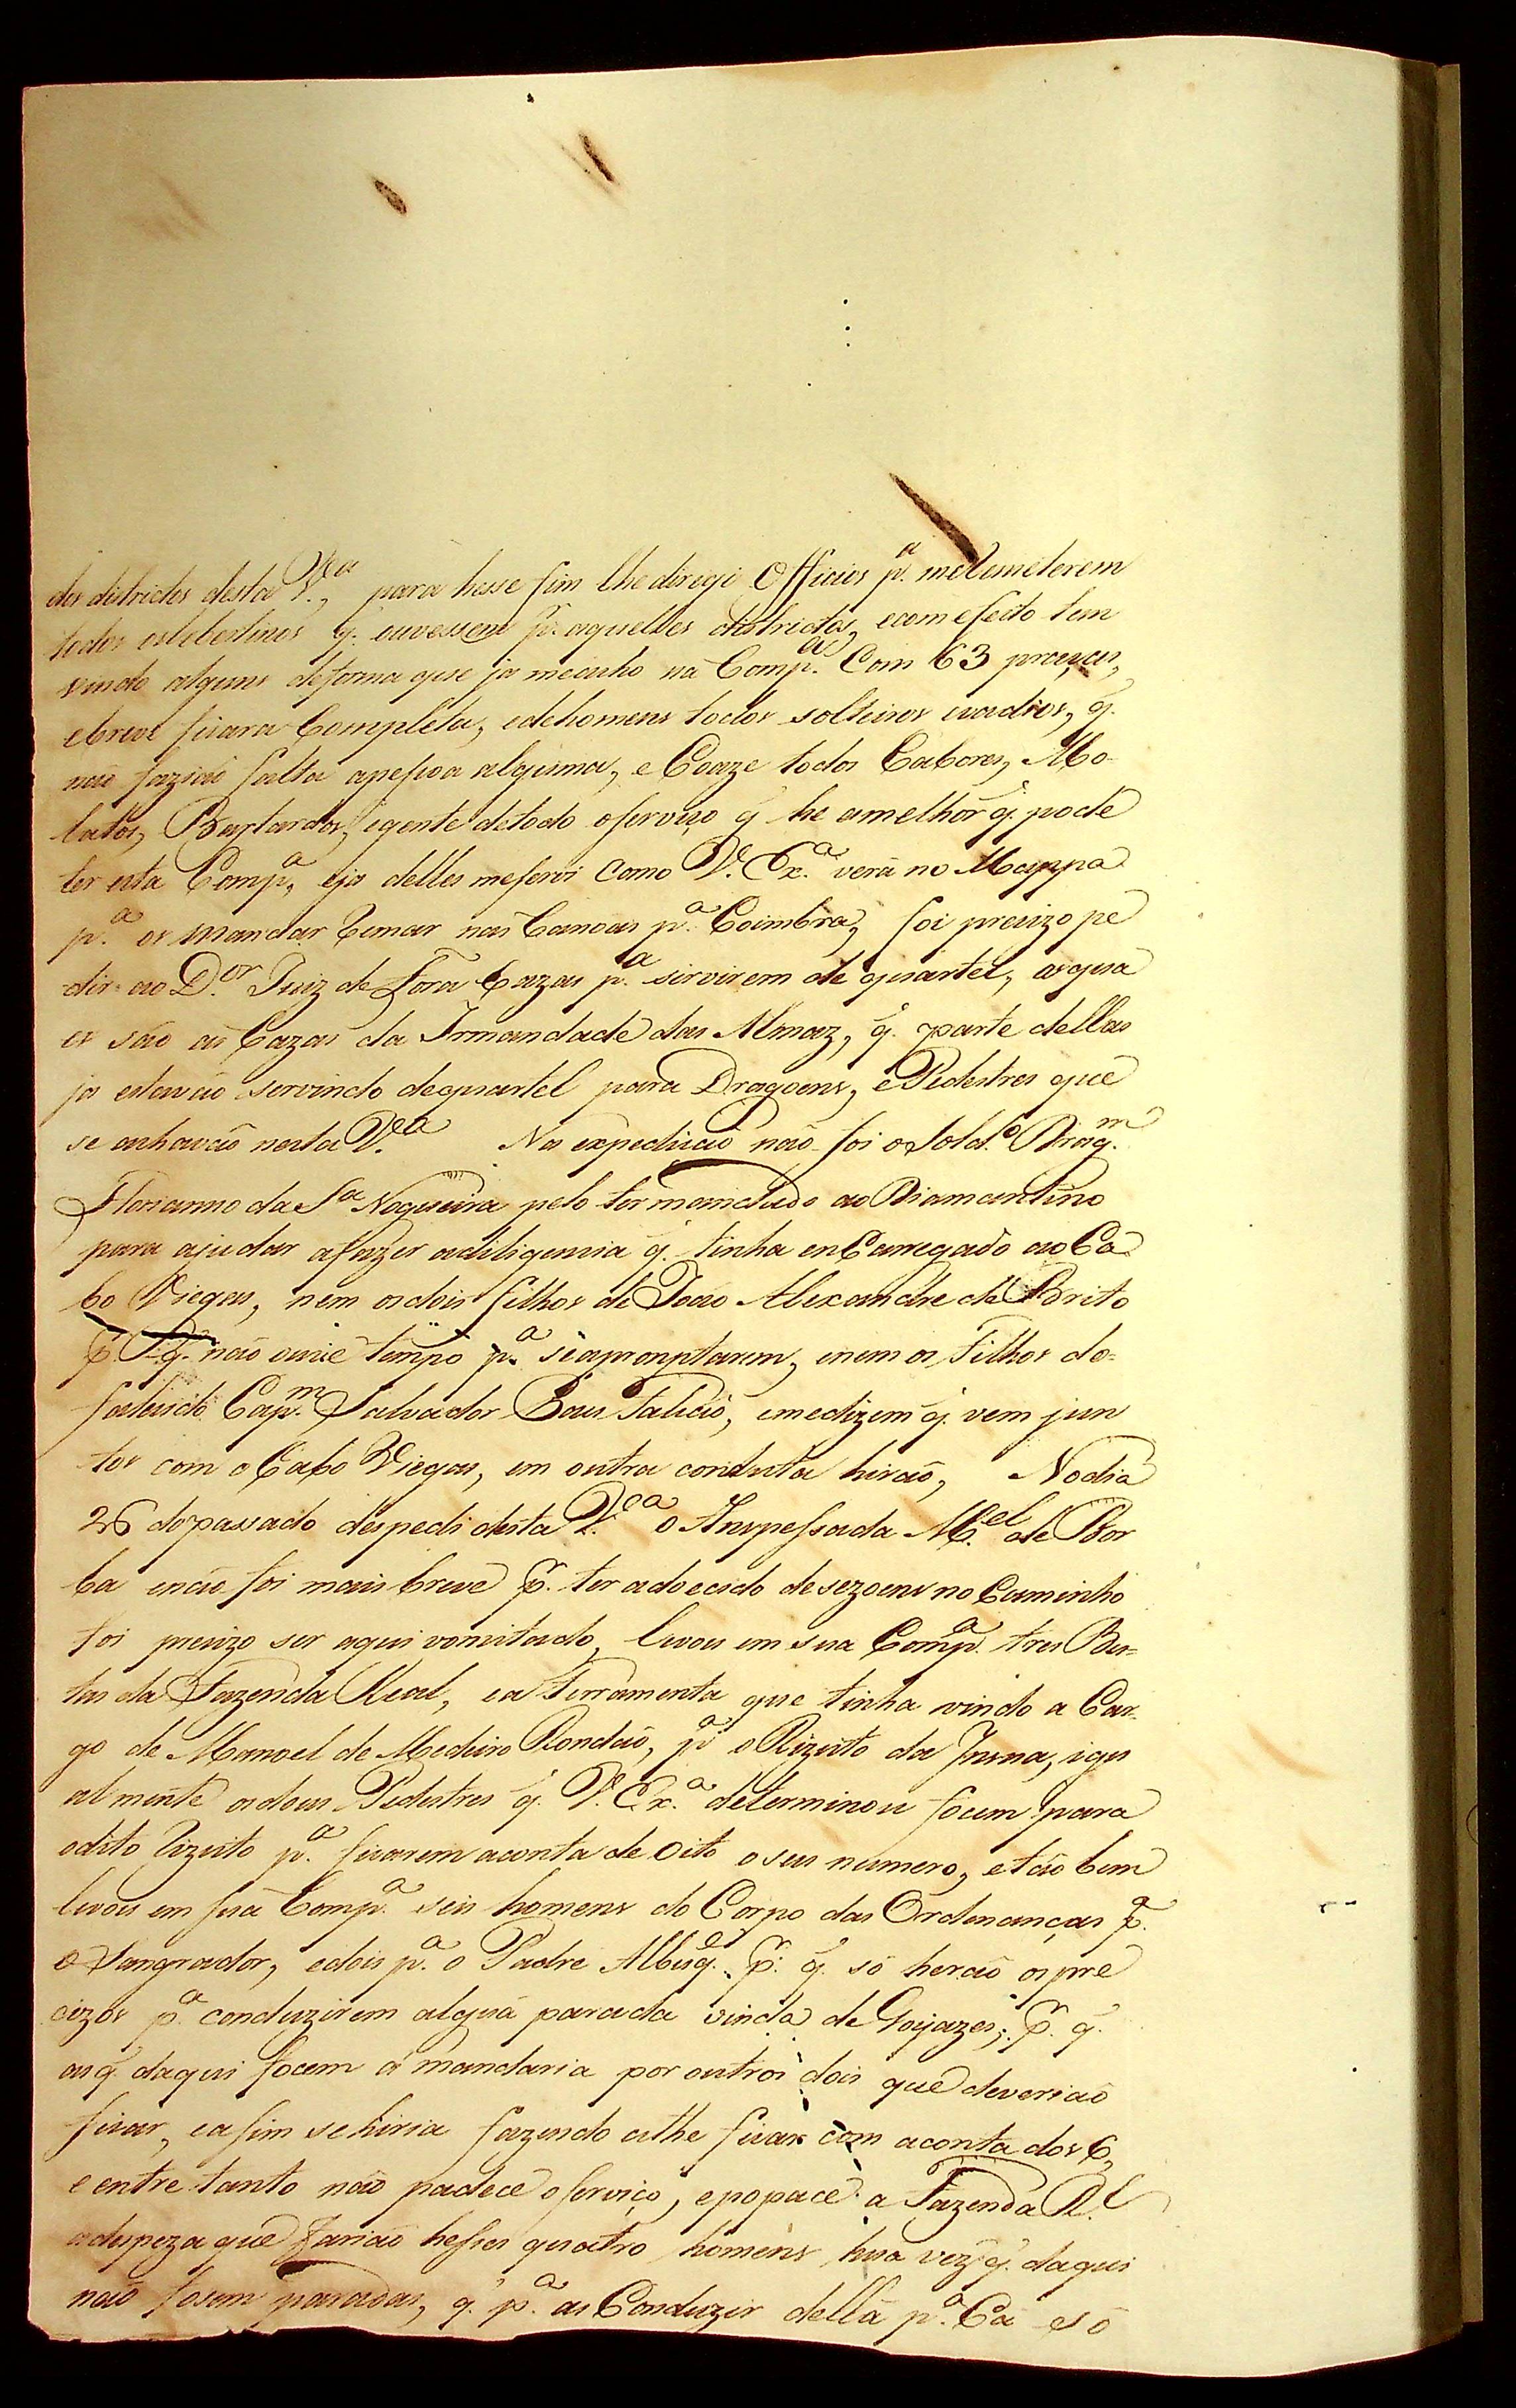 dos districtos desta V.ª, para hesse fim lhe deregi Officios p.ª me Remeterem
todos os Libertinos q. ouvessem p.r aquelles districtos, e com efeito tem
vindo alguns de forma que ja me acho na Comp.ª Com 63 praças,
e breve ficara Completa, e de homens todos solteiros e vadios, q.
não fazião falta a pessoa alguma, e Coaze todos Cabores, Mo-
latos, Bastardos, e gente de todo o servico q. he a melhor q. pode
ter esta Comp.ª, e ja delles me servi Como V. Ex.ª verá no Mappa
p.ª os mandar Remar nas Canoas p.ª Coimbra, foi precizo pe
dir ao D.or Juiz de Fora Cazas p.ª sirvirem de quartel, as qua
es são as Cazas da Irmandade das Almaz, q. parte dellas
ja estavão servindo de quartel para Dragoens, e Pedestres que
se achavão nesta V.ª Na expedicão não foi o Sold.º Drag.m
Florianno da S.ª Nogueira pelo ter mandado ao Diamantino
para ajudar a fazer a diligencia q. tinha enCarregado ao Ca
bo Viegas, nem os dois filhos de João Alexandre de Brito
p.r q. não ouve tempo p.ª se apronptarem, e nem os Filhos do
falecido Cap.m Salvador Paes Falcão, e me dizem q. vem jun
tos com o Cabo Viegas, em outra conduta hirão, No dia
26 do passado despedi desta V.ª o Anspessada M.el de Bor
ba e não foi mais breve p.r ter adoecido de sezoens no Caminho
foi precizo ser aqui vomitado, levou em sua Comp.ª tres Bes-
tas da Fazenda Real, e a Ferramenta que tinha vindo a Car-
go de Manoel de Medeiro Rondão, p.ª o Rizisto da Insua, igu
almente os dous Pedestres q. V. Ex.ª determinou focem para
o dito Rizisto p.ª ficarem a conta de oito o seu numero, e tão bem
levou em sua Comp.ª seis homens do Corpo das Ordenanças p.ª
o Sangrador, e dois p.ª o Padre Albuq.e p.r q. só herão os pre
cizos p.ª conduzirem algũa parada vinda de Goyazes; p.r q.
as q. daqui focem a mandaria por outros dois que deverião
ficar, e assim se hiria fazendo athe ficar com a conta dos 6,
e entre tanto não padece o serviço, e popace a Fazenda R.l
a despeza que farião hesses quatro homens hua vez q. daqui
não fosem paradas, q. p.ª as Conduzir dellá p.ª Cá só